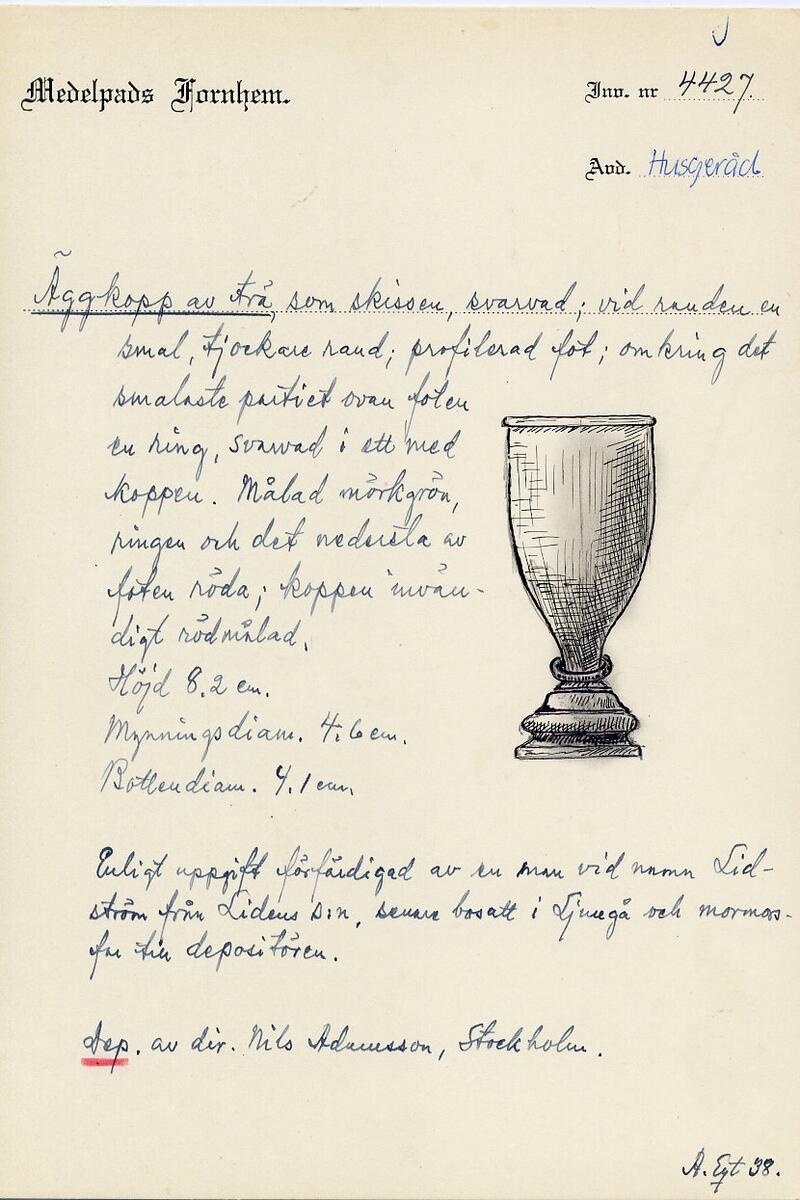 Medelpads Fornhem.
Inv. nr 4427.
Avd. Husgeråd
Äggkopp av trä, som skissen, svarvad; vid randen en
smal, tjockare rand; profilerad fot; omkring det
smalaste partiet ovan foten
en ring, svarvad i ett med
koppen. Målad mörkgrön,
ringen och det nedersta av
foten röda; koppen invän-
digt rödmålad.
Höjd 8.2 cm.
Mynningsdiam. 4.6 cm.
Bottendiam. 4.1 cm.
Enligt uppgift förfärdigad av en man vid namn Lid-
ström från Lidens s:n, senare bosatt i Ljungå och mormors-
far till depositören.
Dep. av dir. Nils Adamsson, Stockholm.
A. Eqt 38.